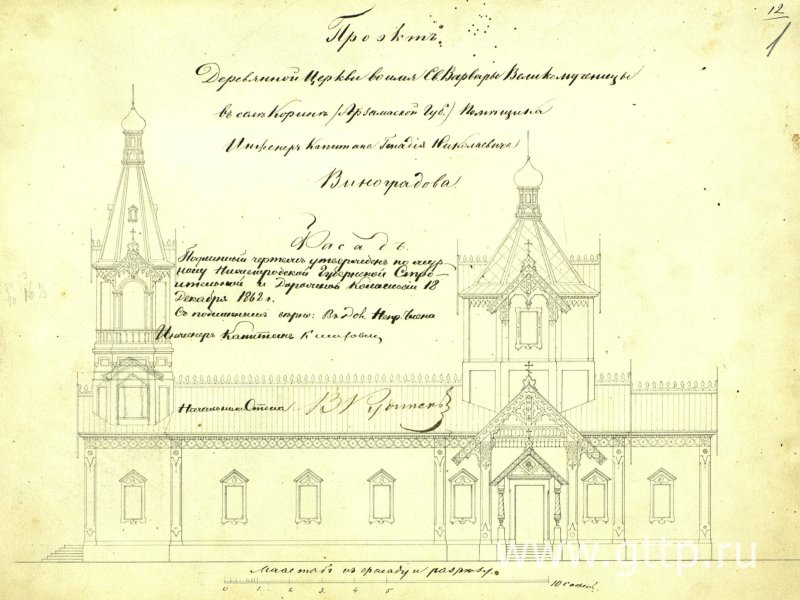 12
1
Проэктъ.
Деревянной Церкви во имя Св. Варвары Великомученицы
въ селѣ Коринѣ (Арзамаской Губ.) Помѣщика
Инженеръ Капитана Генадія Николаевича
Виноградова.
Фасадъ.
Подлинный чертежъ утвержденъ по журналу Нижегородской Губернской Строительной и Дорожной Комисіей 18
Декабря 1862 г.
Съ подлиннымъ вѣрно:
Инженеръ Капитанъ
Начальникъ Стола
www.gttp.ru
Масштабъ къ фасаду и разрѣзу.
0 1. 2. 3. 4. 5 10 саженъ